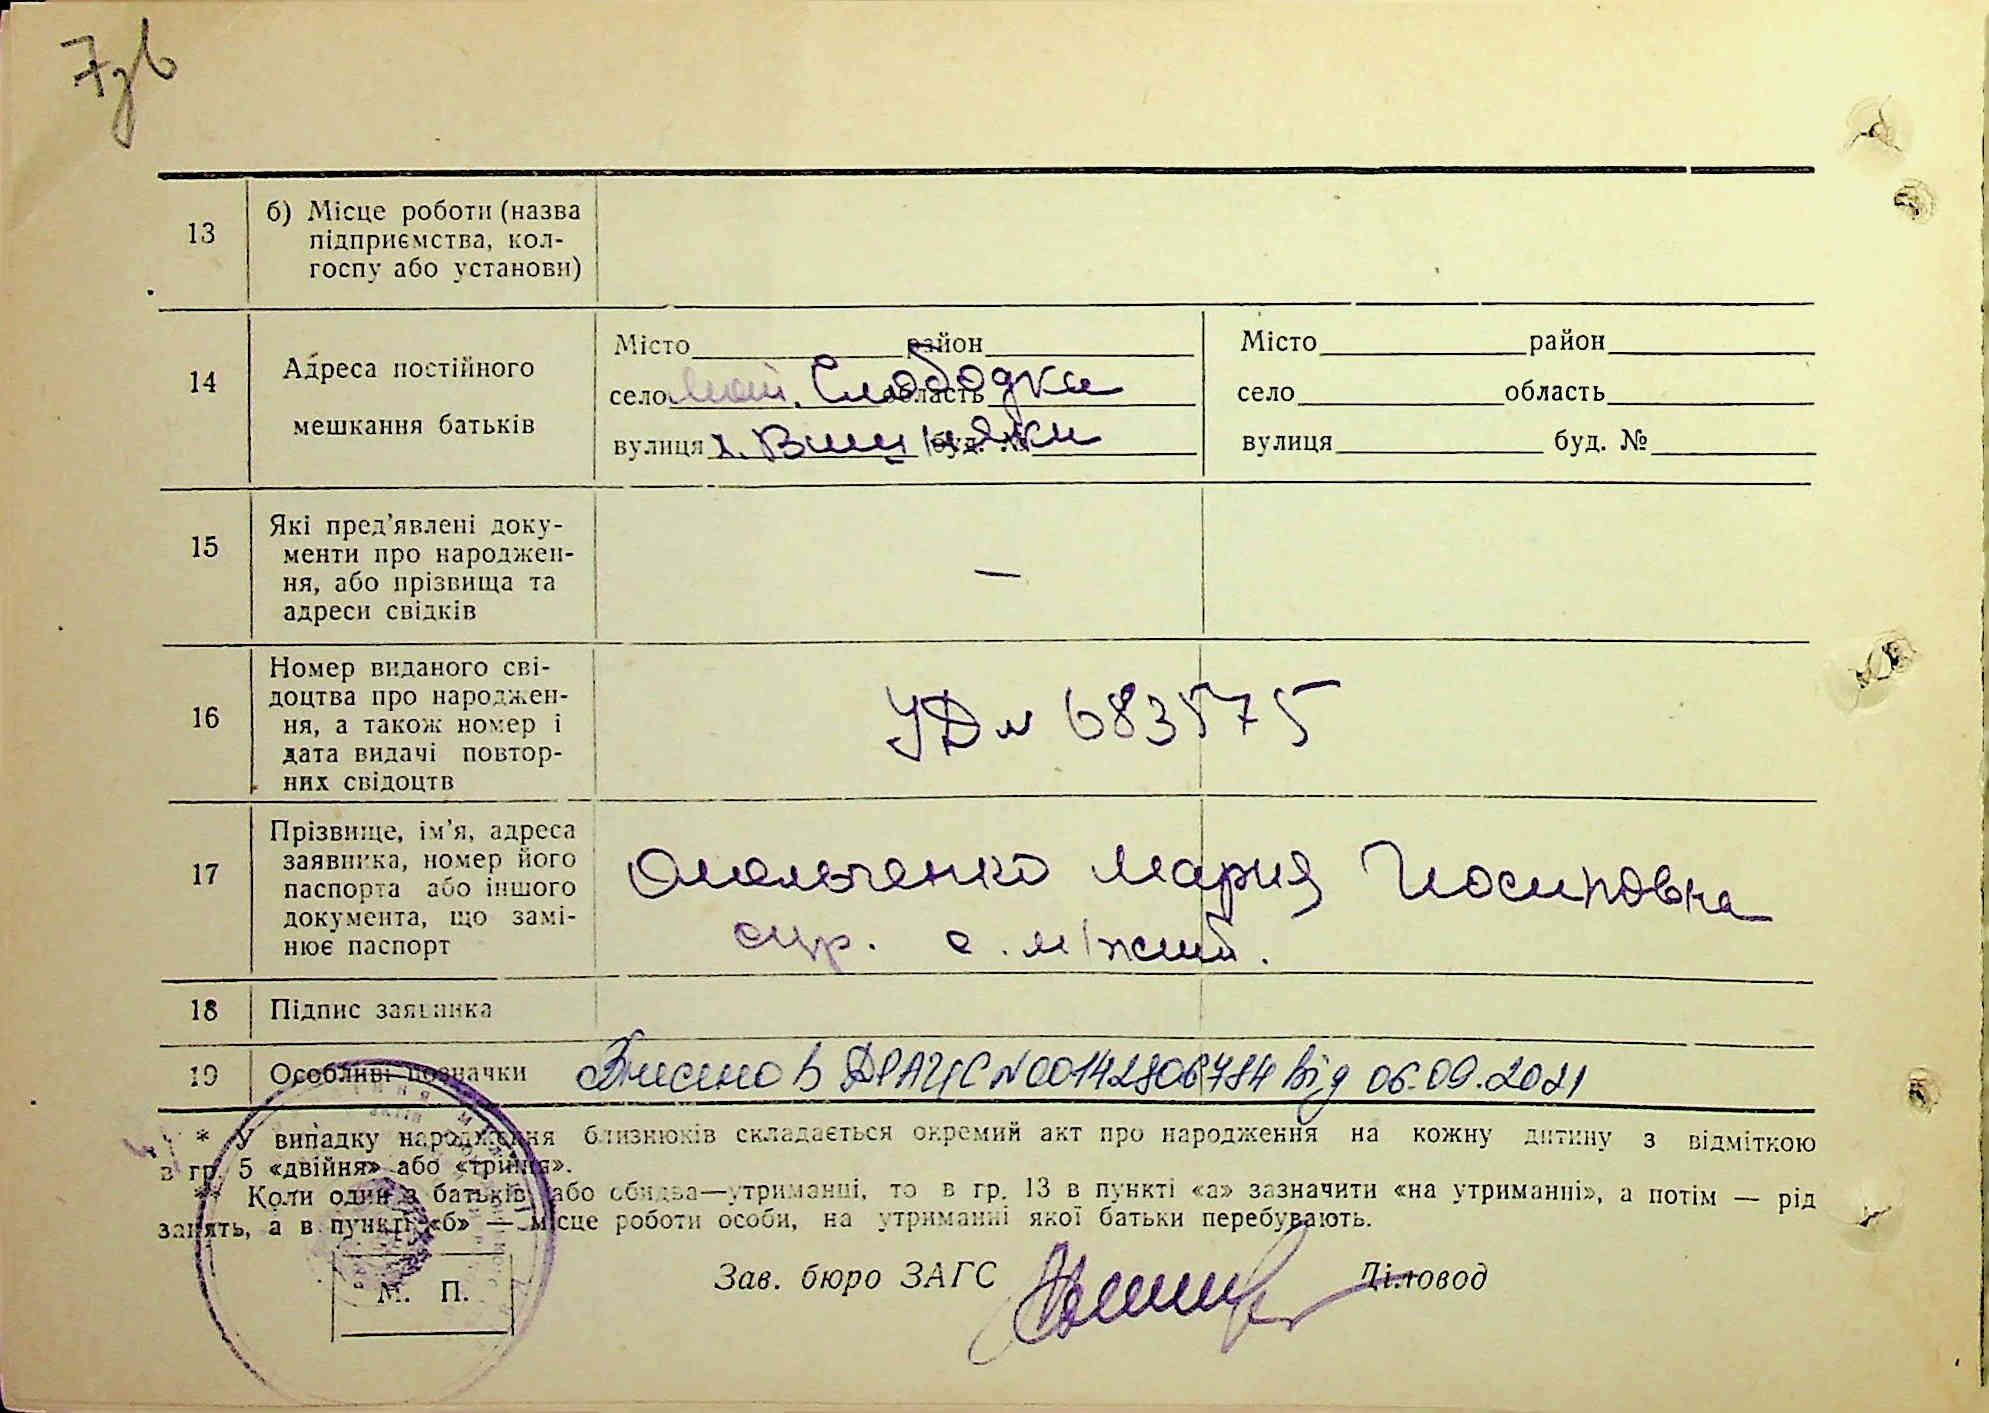 7зв
13
б) Місце роботи (назва
підприємства, кол-
госпу або установи)
14
Адреса постійного
мешкання батьків
Місто район
село Мал. Слободка область
вулиця х. Вишняки буд. №
Місто район
село область
вулиця буд. №
15
Які пред’явлені доку-
менти про народжен-
ня, або прізвища та
адреси свідків
—
16
Номер виданого сві-
доцтва про народжен-
ня, а також номер і
дата видачі повтор-
них свідоцтв
УД № 683575
17
Прізвище, ім’я, адреса
заявника, номер його
паспорта або іншого
документа, що замі-
нює паспорт
Омельченко Мария Иосиповна
18
Підпис заявника
19
Особливі позначки
Внесено в ДРАЦС N 00142806784 від 06.09.2021
* У випадку народження близнюків складається окремий акт про народження на кожну дитину з відміткою
в гр. 5 «двійня» або «трийня».
** Коли один з батьків або обидва—утриманці, то в гр. 13 в пункті «а» зазначити «на утриманні», а потім — рід
занять, а в пункті «б» — місце роботи особи, на утриманні якої батьки перебувають.
М. П.
Зав. бюро ЗАГС
Діловод